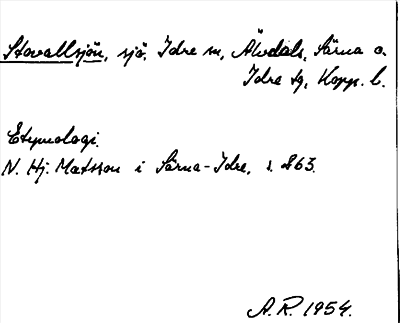 Stovallsjön, sjö, Idre sn, Älvdals, Särna o.
Idre tg, Kopp. l.
Etymologi.
N. Hj. Matsson i Särna-Idre, s. 863.
A.R. 1954.